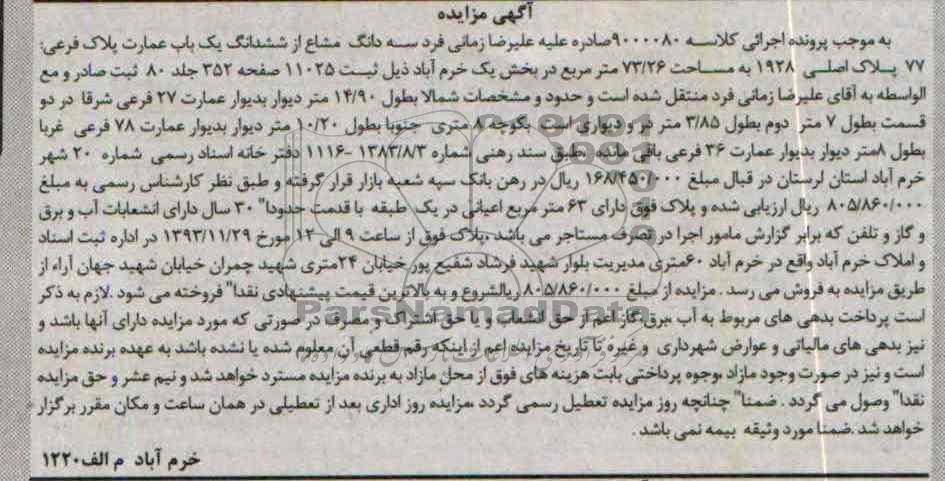 آگهی مزایده
به موجب پرونده اجرائی کلاسه ۹۰۰۰۰۸۰صادره علیه علیرضا زمانی فرد سه دانگ مشاع از ششدانگ یک باب عمارت پلاک فرعی:
۷۷ پلاک اصلی ۱۹۲۸ به مساحت ۷۳/۲۶ متر مربع در بخش یک خرم آباد ذیل ثبت ۱۱۰۲۵ صفحه ۳۵۲ جلد ۸۰ ثبت صادر و مع
الواسطه به آقای علیرضا زمانی فرد منتقل شده است و حدود و مشخصات شمالا بطول ۱۴/۹۰ متر دیوار بدیوار عمارت ۲۷ فرعی شرقا در دو
قسمت بطول ۷ متر دوم بطول ۳/۸۵ متر در و دیواری است بکوچه ۸ متری جنوبا بطول ۱۰/۲۰ متر دیوار بدیوار عمارت ۷۸ فرعی غربا
بطول ۸متر دیوار بدیوار عمارت ۳۶ فرعی باقی مانده ،طبق سند رهنی شماره ۱۳۸۳/۸/۳ -۱۱۱۶ دفتر خانه اسناد رسمی شماره ۲۰ شهر
خرم آباد استان لرستان در قبال مبلغ ۱۶۸/۴۵۰/۰۰۰ ریال در رهن بانک سپه شعبه بازار قرار گرفته و طبق نظر کارشناس رسمی به مبلغ
۸۰۵/۸۶۰/۰۰۰ ریال ارزیابی شده و پلاک فوق دارای ۶۳ متر مربع اعیانی در یک طبقه با قدمت حدودا" ۳۰ سال دارای انشعابات آب و برق
و گاز و تلفن که برابر گزارش مامور اجرا در تصرف مستاجر می باشد ،پلاک فوق از ساعت ۹ الی ۱۲ مورخ ۱۳۹۳/۱۱/۲۹ در اداره ثبت اسناد
و املاک خرم آباد واقع در خرم آباد ۶۰متری مدیریت بلوار شهید فرشاد شفیع پور خیابان ۲۴متری شهید چمران خیابان شهید جهان آراء از
طریق مزایده به فروش می رسد . مزایده از مبلغ ۸۰۵/۸۶۰/۰۰۰ ریالشروع و به بالاترین قیمت پیشنهادی نقدا" فروخته می شود .لازم به ذکر
است پرداخت بدهی های مربوط به آب ،برق،گاز اعم از حق انشعاب و یا حق اشتراک و مصرف در صورتی که مورد مزایده دارای آنها باشد و
نیز بدهی های مالیاتی و عوارض شهرداری و غیره تا تاریخ مزایده اعم از اینکه رقم قطعی آن معلوم شده یا نشده باشد به عهده برنده مزایده
است و نیز در صورت وجود مازاد ،وجوه پرداختی بابت هزینه های فوق از محل مازاد به برنده مزایده مسترد خواهد شد و نیم عشر و حق مزایده
نقدا" وصول می گردد . ضمنا" چنانچه روز مزایده تعطیل رسمی گردد ،مزایده روز اداری بعد از تعطیلی در همان ساعت و مکان مقرر برگزار
خواهد شد .ضمنا مورد وثیقه بیمه نمی باشد .
خرم آباد م الف۱۲۲۰
ParsNamadData